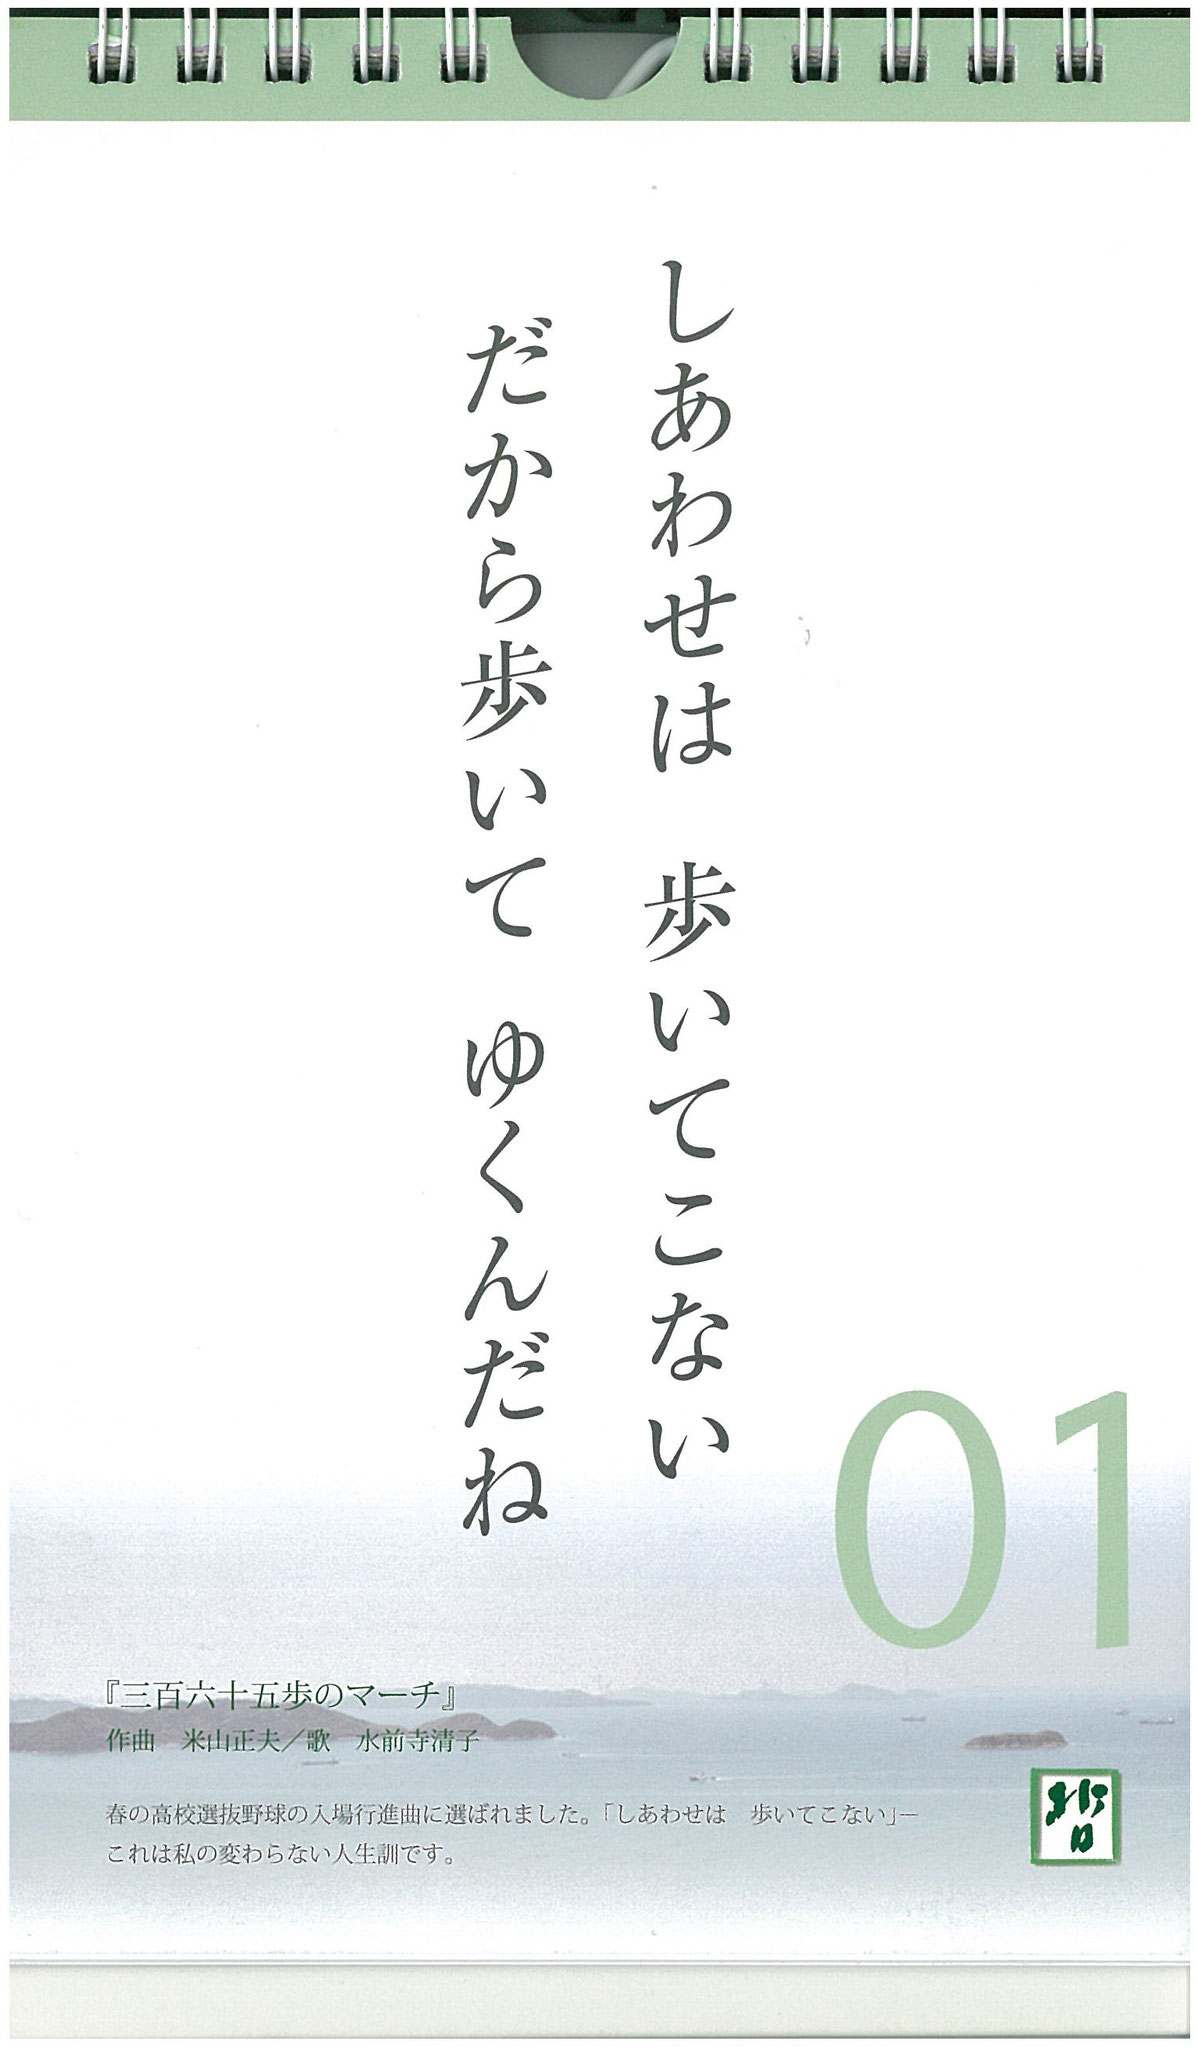 しあわせは　歩いてこない
だから歩いて　ゆくんだね
01
『三百六十五歩のマーチ』
作曲　米山正夫／歌　水前寺清子
春の高校選抜野球の入場行進曲に選ばれました。「しあわせは　歩いてこない」−
これは私の変わらない人生訓です。
哲